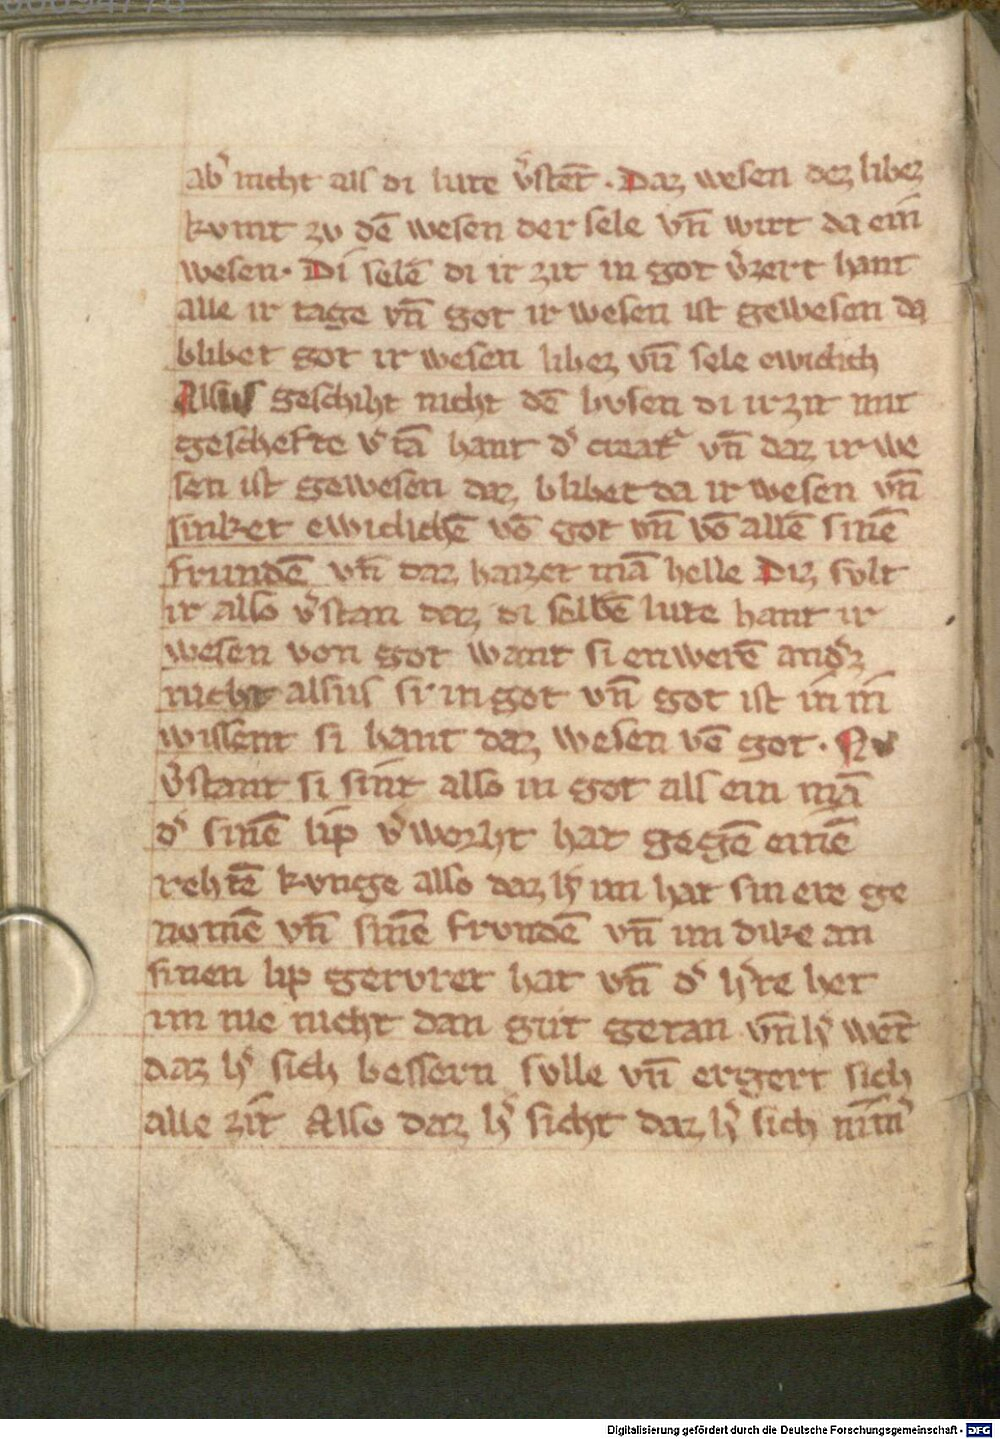 ab͛ nicht als di lute v͛stēt · Daz wesen dez libez
kvmt zv dē wesen der sele vn̄ wirt da ein
wesen · Di selē di ir zit in got v͛zert hant
alle ir tage vn̄ got ir wesen ist gewesen da
blibet got ir wesen libez vn̄ sele ewiclich
Alsus geschiht nicht dē bosen di ir zit mit
geschefte v͛tā hant d͛ creat͛ vn̄ daz ir we
sen ist gewesen daz blibet da ir wesen vn̄
sinket ewiclichē vō got vn̄ vō allē sinē
frundē vn̄ daz haizet mā helle Diz svlt
ir also v͛stan daz di selbē lute hant ir
wesen von got want si enwerē and͛z
nicht alsus si in got vn̄ got ist in in
wissent si hant daz wesen vō got · Nv
v͛stant si sint also in got als ein mā
d͛ sinē lip v͛worht hat gegē einē
rehtē kvnge also daz h͛ im hat sin ere ge
nomē vn̄ sinē frvndē vn̄ im dike an
sinen lip gervret hat vn̄ d͛ h͛re het
im nie nicht dan gut getan vn̄ h͛ wēt
daz h͛ sich bessern svlle vn̄ ergert sich
alle zit Also daz h͛ sicht daz h͛ sich nim͛
Digitalisierung gefördert durch die Deutsche Forschungsgemeinschaft - DFG